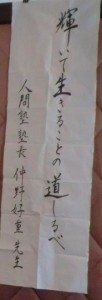 輝いて生きることの道しるべ
人間塾塾長仲野好重先生